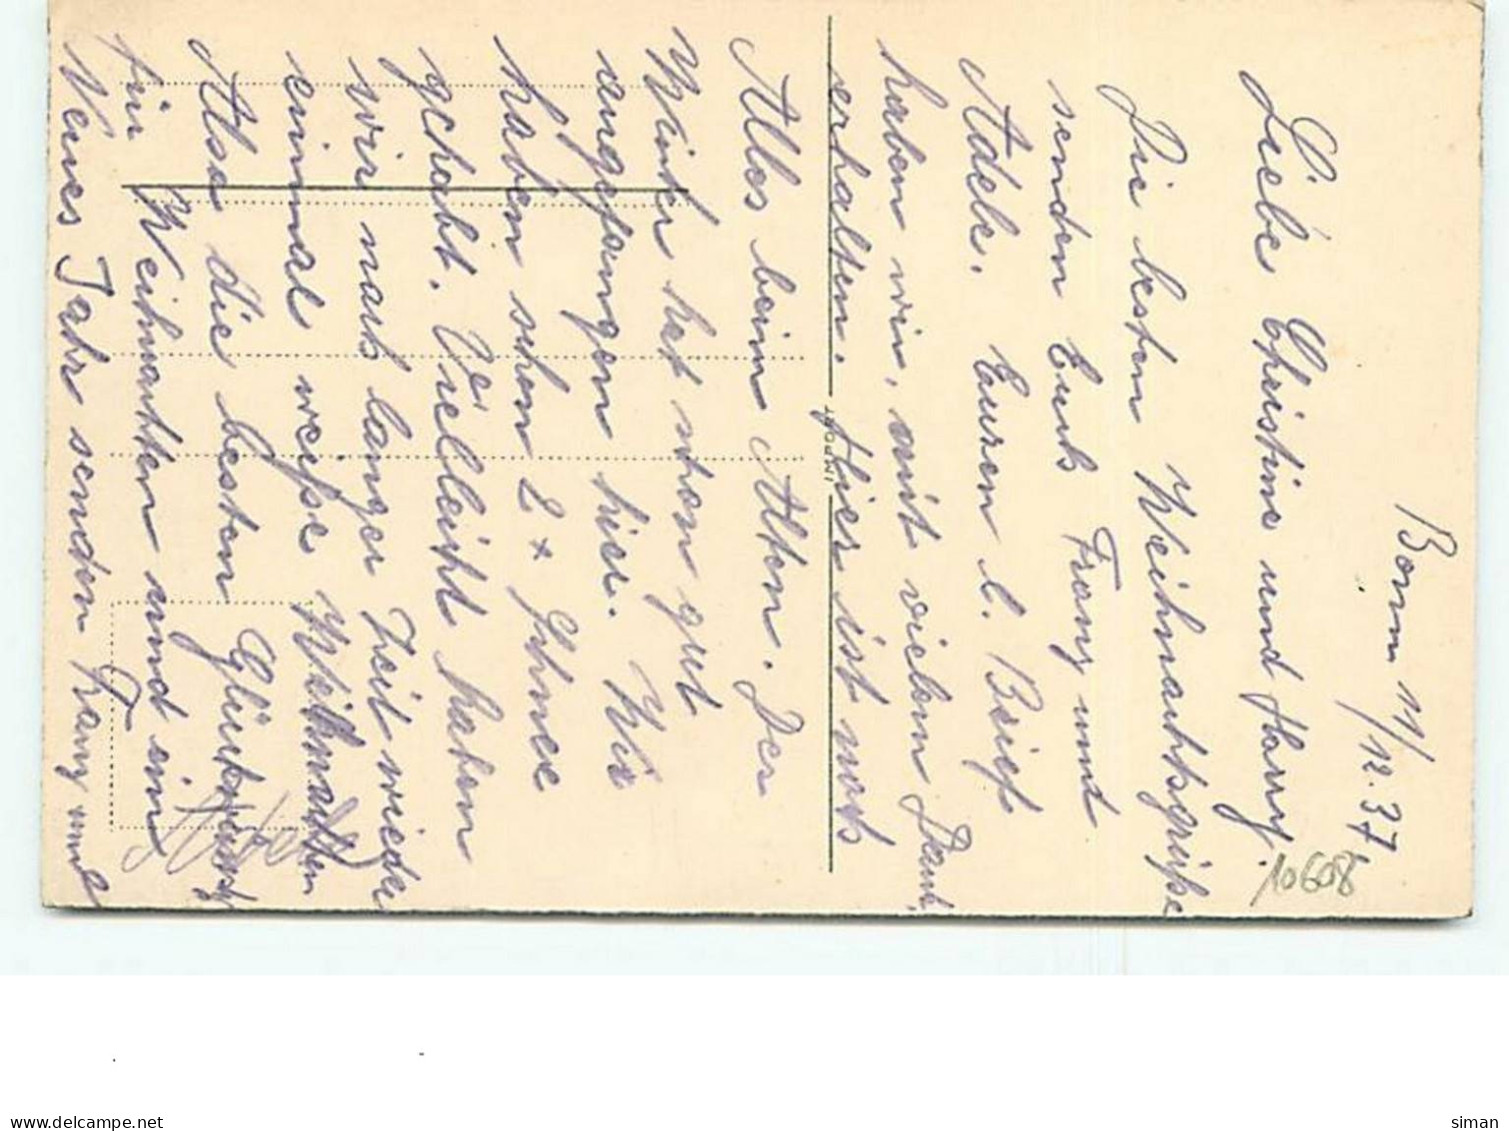 Bonn 11/12.37.
Liebe Christine und Harry.
Die besten Weihnachtsgrüße
senden Euch Franz und
Adele. Euren l. Brief
haben wir, mit vielem Dank,
erhalten. Hier ist noch
Alles beim Alten. Der
Winter hat schon gut
angefangen hier. Wir
haben schon 2 x Schnee
gehabt. Vielleicht haben
wir nach langer Zeit wieder
einmal weiße Weihnachten
Also die besten Glückwünsche
für Weihnachten und ein
Neues Jahr senden Franz und
10608
IMPORT
www.delcampe.net
siman